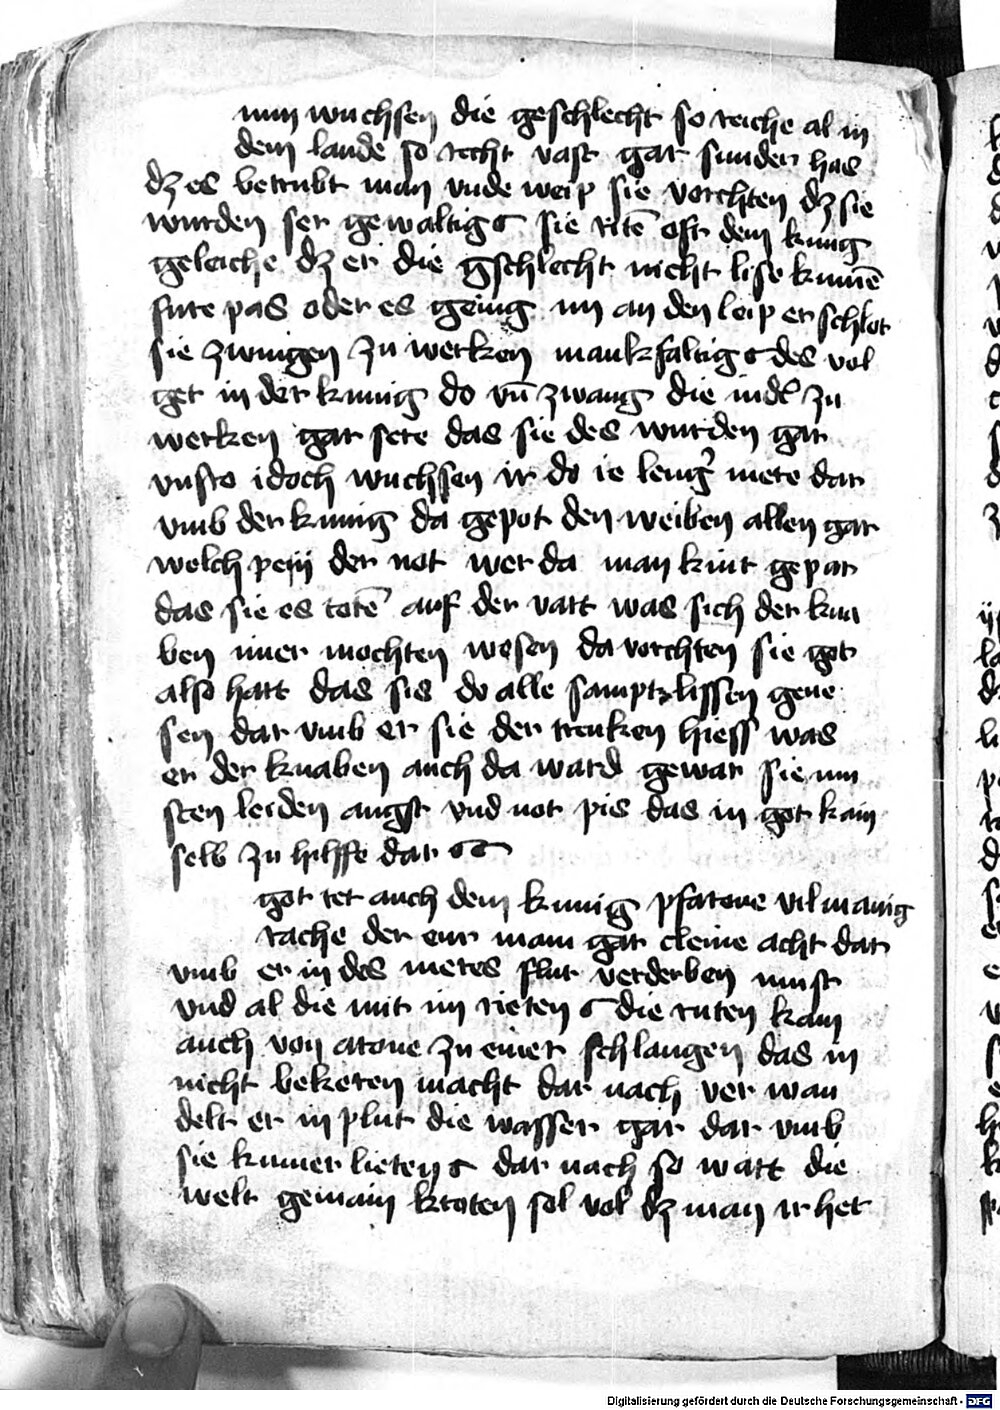 nun wuchsen die geschlecht so reiche al in
dem lande so recht vast gar sunder has
dz es betrubt man vnde weip sie vorchten dz sie
wurden ser gewaltig sie ritē oft dem kung
geleiche dz er die gschlecht nicht lise kumē
furepas oder es geing im an den leip er schlot
sie zwingen zu werken manikfaltig des vol
get in der kunig do vn̄ zwang die iudē zu
werken gar sere das sie des wurden gar
vnfro idoch wuchsen ir do ie leng mere dar
vmb der kunig da gepot den weiben allen gar
welch peÿ der not wer da man kint gepar
das sie es totē auf der vart was sich der kna
ben imer mochten wesen da vorchten sie got
also hart das sie do alle sampt lissen gene
sen dar vmb er sie der trenken hiess was
er der knaben auch da ward gewar sie mu
sten leiden angst vnd not pis das in got kam
selb zu hilffe dar
got tet auch dem kunig pharone vil manig
rache der eur nam gar cleine acht dar
vmb er in des meres flut verderben must
vnd al die mit im rieten die ruten kam
auch von arone zu einer schlangen das in
nicht bekeren macht dar nach ver wan
delt er in plut die wasser gar dar vmb
sie kumer lieten dar nach so wart die
welt gemain kroten sol vol dz man ir het
Digitalisierung gefördert durch die Deutsche Forschungsgemeinschaft - DFG